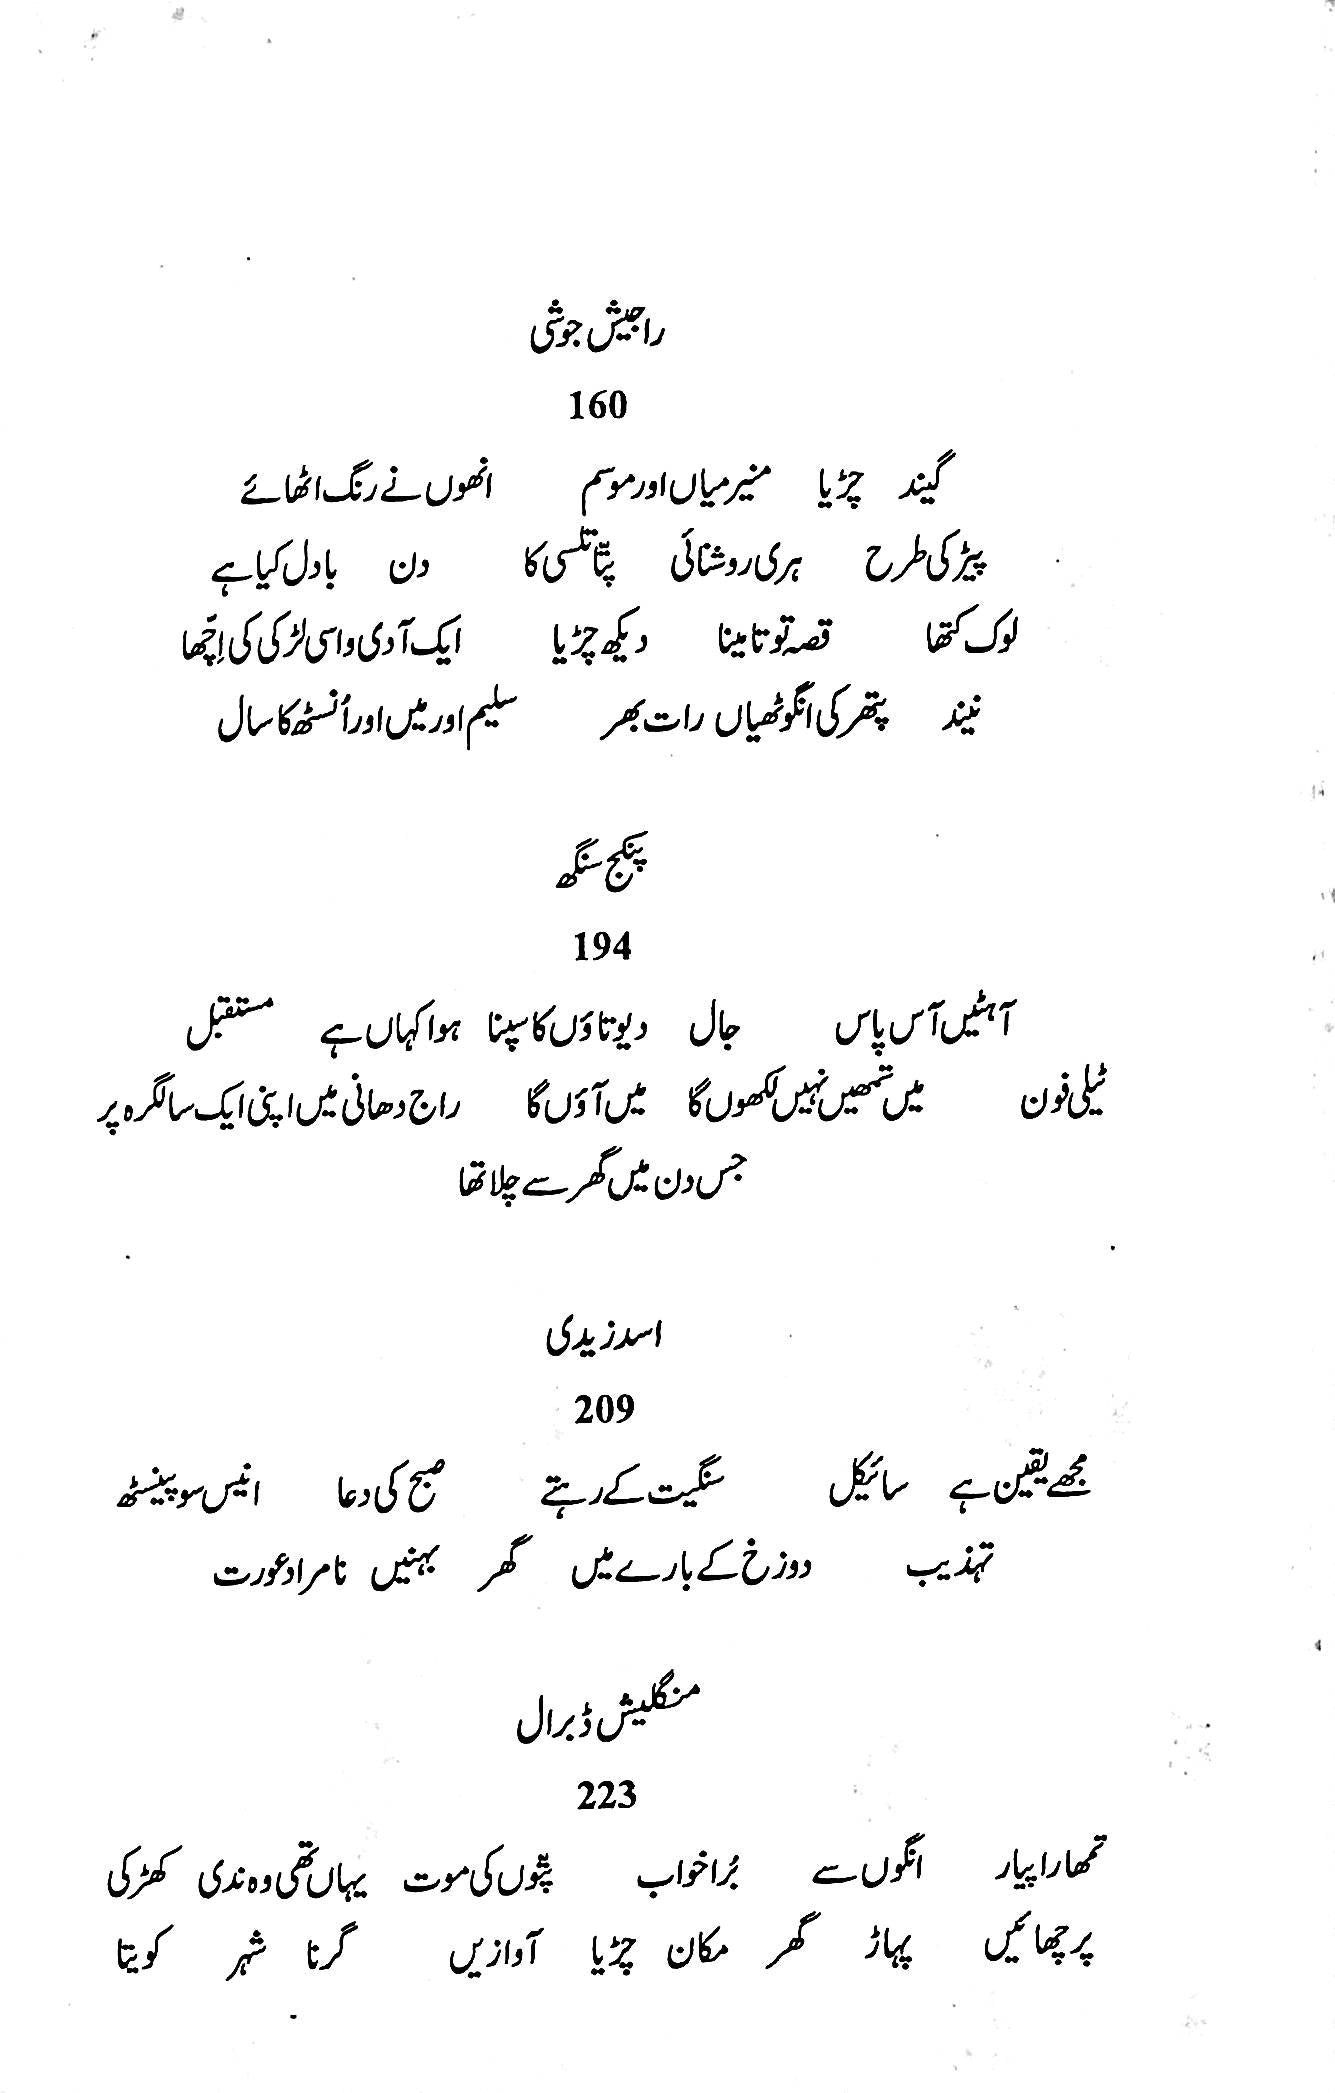 راجیش جوشی
160
گیند چڑیا منیر میاں اور موسم انھوں نے رنگ اٹھائے
پیڑ کی طرح ہری روشنائی پتّا تلسی کا دن بادل کیا ہے
لوک کتھا قصہ توتا مینا دیکھ چڑیا ایک آدی واسی لڑکی کی اِچّھا
نیند پتھر کی انگوٹھیاں رات بھر سلیم اور میں اور اُنسٹھ کا سال
پنکج سنگھ
194
آہٹیں آس پاس جال دیوتاؤں کا سپنا ہوا کہاں ہے مستقبل
ٹیلی فون میں تمھیں نہیں لکھوں گا میں آؤں گا راج دھانی میں اپنی ایک سالگرہ پر
جس دن میں گھر سے چلا تھا
اسد زیدی
209
مجھے یقین ہے سائیکل سنگیت کے رہتے صبح کی دعا انیس سو پینسٹھ
تہذیب دوزخ کے بارے میں گھر بہنیں نامراد عورت
منگلیش ڈبرال
223
تمھارا پیار انگوں سے بُرا خواب پتّوں کی موت یہاں تھی وہ ندی کھڑکی
پرچھائیں پہاڑ گھر مکان چڑیا آوازیں گرنا شہر کویتا